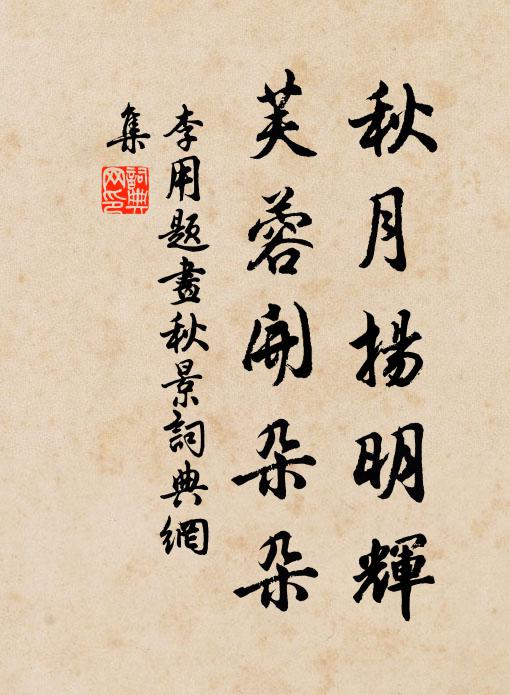 秋月揚明輝
芙蓉開朵朵
李用題畫秋景詞典網
集
詞典
网印